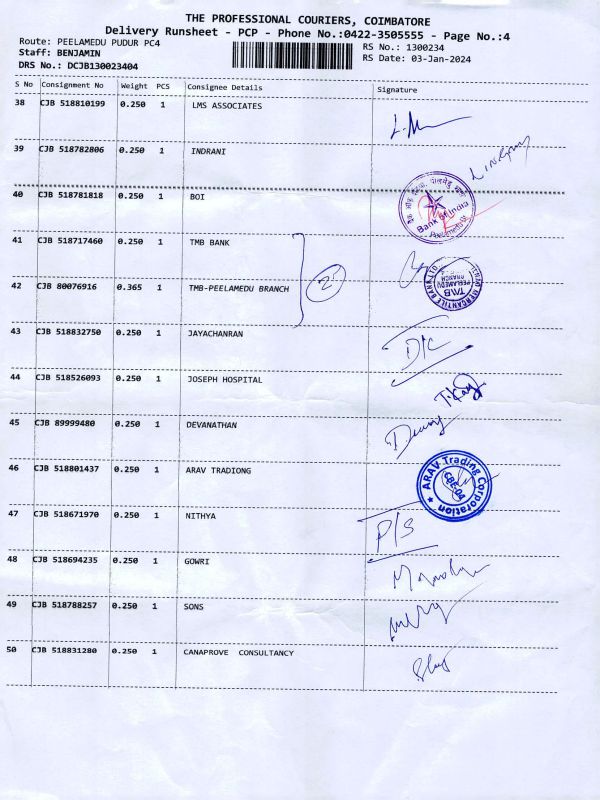 THE PROFESSIONAL COURIERS, COIMBATORE
Delivery Runsheet - PCP - Phone No.:0422-3505555 - Page No.:4
Route: PEELAMEDU PUDUR PC4
RS No.: 1300234
Staff: BENJAMIN
RS Date: 03-Jan-2024
DRS No.: DCJB130023404
S No Consignment No Weight PCS Consignee Details Signature
38 CJB 518810199 0.250 1 LMS ASSOCIATES
39 CJB 518782806 0.250 1 INDRANI
40 CJB 518781818 0.250 1 BOI
Bank of India
41 CJB 518717460 0.250 1 TMB BANK
2
42 CJB 80076916 0.365 1 TMB-PEELAMEDU BRANCH
TMB
PEELAMEDU
BRANCH
43 CJB 518832750 0.250 1 JAYACHANRAN
D/C
44 CJB 518526093 0.250 1 JOSEPH HOSPITAL
45 CJB 89999480 0.250 1 DEVANATHAN
46 CJB 518801437 0.250 1 ARAV TRADIONG
ARAV Trading Corporation
CBE-04
47 CJB 518671970 0.250 1 NITHYA
P/S
48 CJB 518694235 0.250 1 GOWRI
49 CJB 518788257 0.250 1 SONS
50 CJB 518831280 0.250 1 CANAPROVE CONSULTANCY